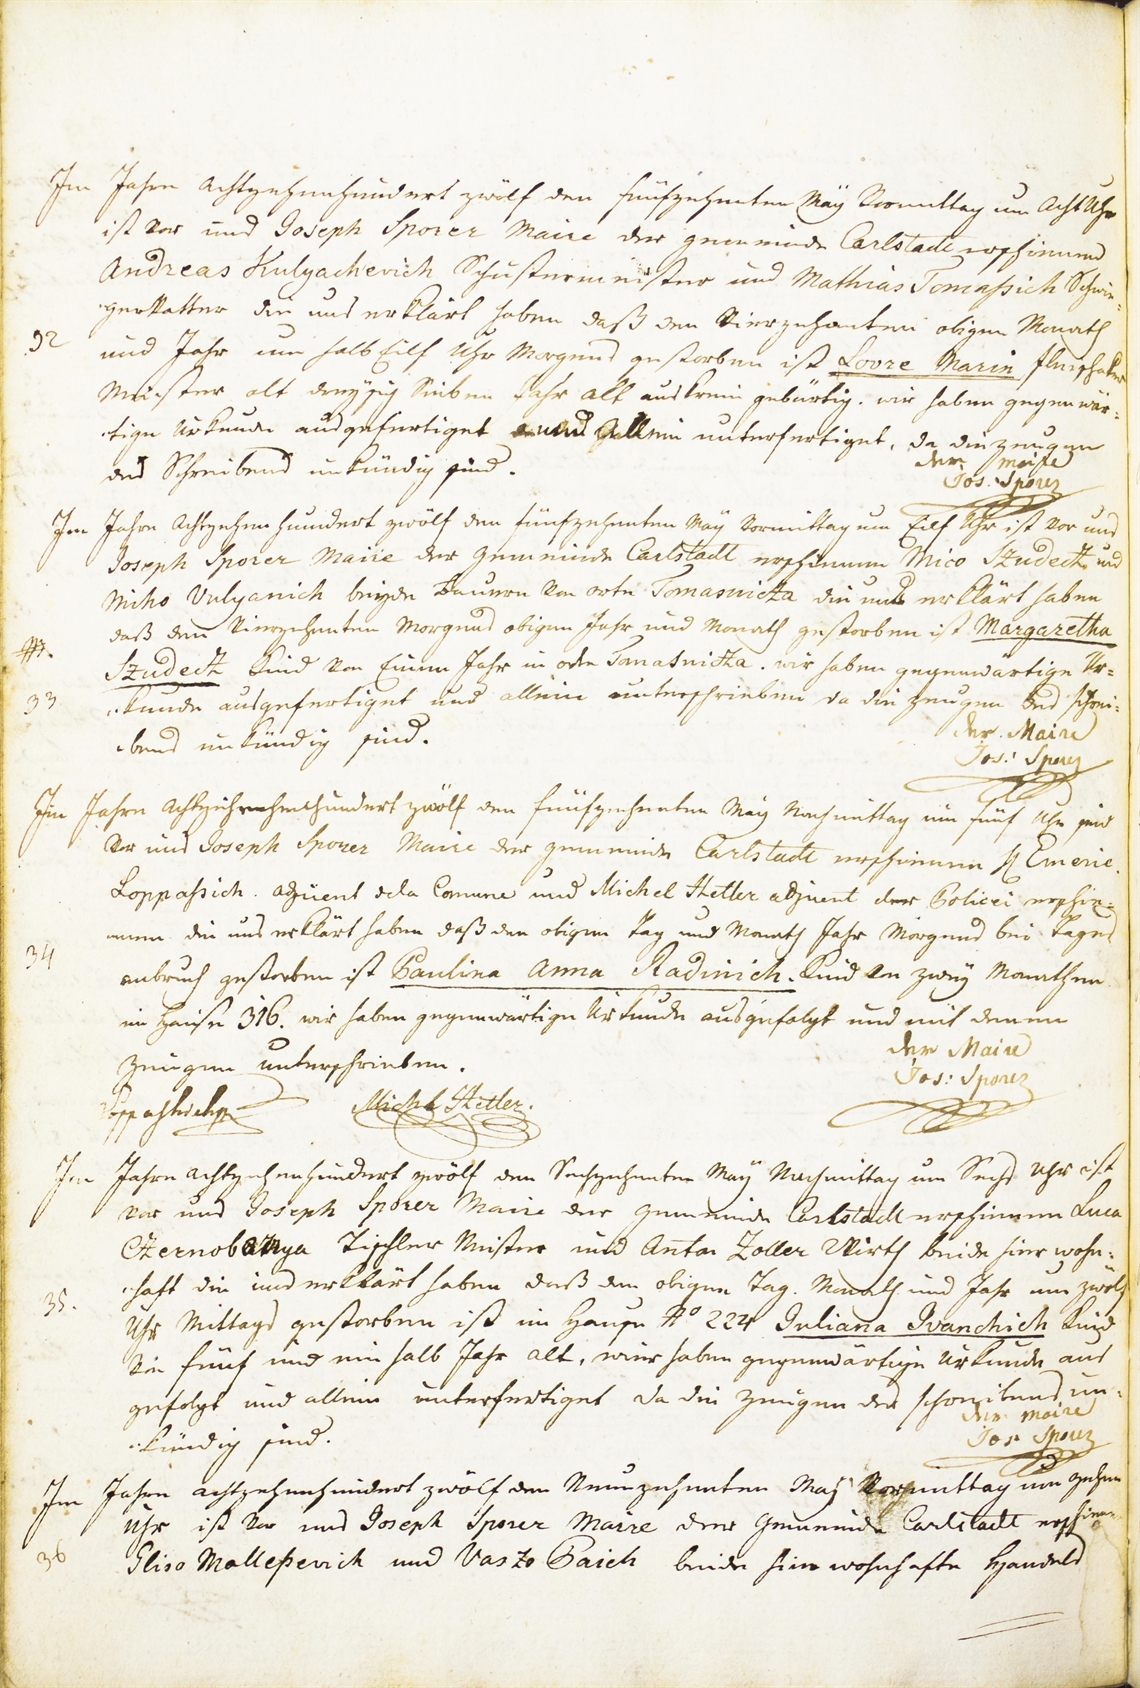 Im Jahre Achtzehenhundert zwölf den fünfzehenten Maÿ Vormittag um Acht Uhr
ist vor uns Joseph Sporer Maire der gemeinde Carlstadt erschienen
Andreas Kulyachevich Schustermeister und Mathias Tomaßich Schwie-
gervatter die uns erklärt haben daß den Vierzehenten obigen Monath
32
und Jahr um halb Eilf Uhr Morgens gestorben ist Lovre Marin
Meister alt dreyßig Sieben Jahr alt aus Krain gebürtig. wir haben gegenwär-
tige Urkunde ausgefertiget und Allein unterfertiget, da die zeugen
des Schreibens unkündig sind.
der Maire
Jos. Sporer
Im Jahre Achtzehenhundert zwölf den fünfzehenten Maÿ Vormittag um Eilf Uhr ist vor uns
Joseph Sporer Maire der Gemeinde Carlstadt erschienen Mico Szudeck und
Miko Vulyanich beyde Bauern von orte Tomasnicza die uns erklärt haben
daß den Vierzehenten Morgens obigen Jahr und Monath gestorben ist Margaretha
Szudeck Kind von Einem Jahr in orte Tomasnicza. wir haben gegenwärtige Ur-
33
kunde ausgefertiget und allein unterschrieben da die zeugen des schrei-
bens unkündig sind.
der Maire
Jos: Sporer
Im Jahre Achtzehenhundert zwölf den fünfzehenten Maÿ Nachmittag um fünf Uhr sind
vor uns Joseph Sporer Maire der gemeinde Carlstadt erschienen H Emeric
Loppaßich adjuent dela Comune und Michel Stetler adjuent der Policei erschie-
nen die uns erklärt haben daß den obigen Tag und Monath Jahr Morgens bei tages
34
anbruch gestorben ist Paulina Anna Radinich. Kind von zweÿ Monathen
im Hause 316. wir haben gegenwärtige Urkunde ausgefolgt und mit denen
zeugen unterschrieben.
der Maire
Jos: Sporer
Loppaßich
Michel Stetler.
Im Jahre achtzehenhundert zwölf den Sechzehenten Maÿ Nachmittag um Sechs Uhr ist
vor uns Joseph Sporer Maire der gemeinde Carlstadt erschienen Luca
Czernobanya Tischler Meister und Anton Zoller Wirth beide hier wohn-
haft die uns erklärt haben daß den obigen Tag. Monath und Jahr um zwölf
35.
Uhr Mittags gestorben ist im Hause No 224 Juliana Ivanchich Kind
von fünf und ein halb Jahr alt, wir haben gegenwärtige Urkunde aus
gefolgt und allein unterfertiget da die zeugen des schreibens un-
kündig sind.
der Maire
Jos Sporer
Im Jahre achtzehenhundert zwölf den Neunzehenten Maÿ Vormittag um zehen
Uhr ist vor uns Joseph Sporer Maire der Gemeinde Carlstadt erschienen
36
Gliso Malleßevich und Vaszo Paich beide hier wohnhafte Handels